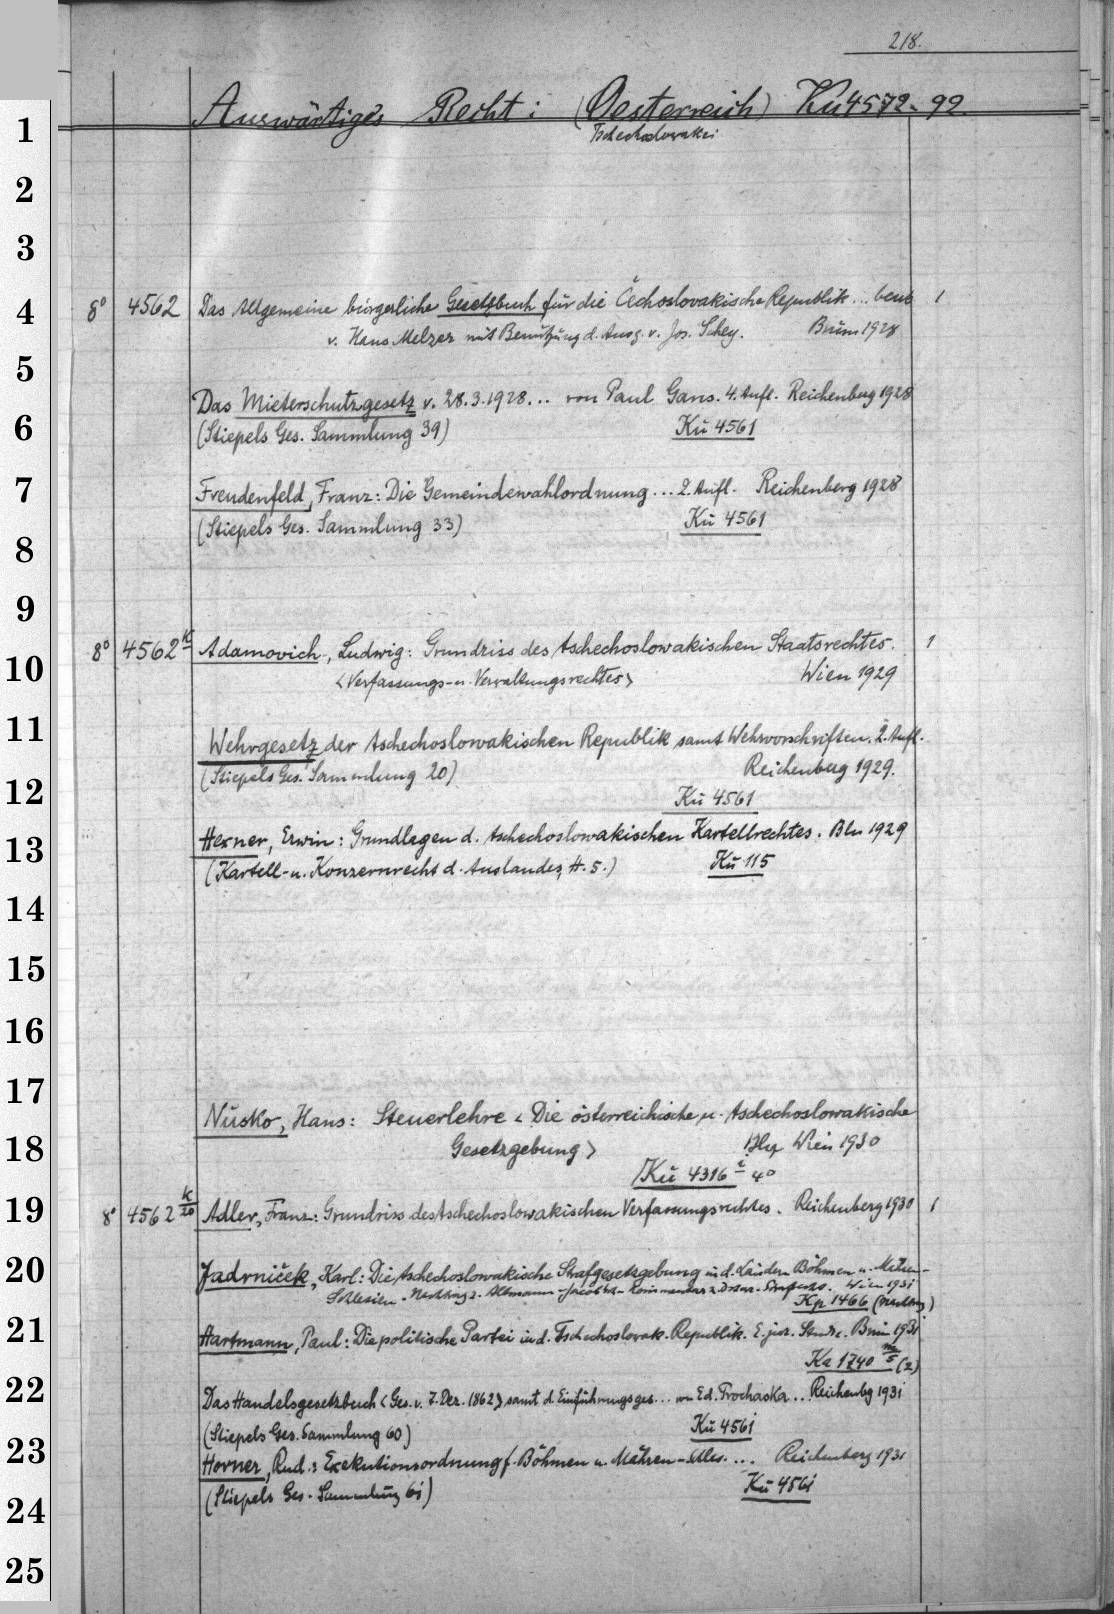 218.
Auswärtiges Recht: (Oesterreich) Kü4572-92.
Tschechoslowakei
1
2
3
4
8° 4562 Das Allgemeine bürgerliche Gesetzbuch für die Čechoslovakische Republik ... 1
v. Hans Melzer mit Benützung d. Ausg. v. Jos. Schey. Brünn 1928
5
Das Mieterschutzgesetz v. 28.3.1928... von Paul Gans. 4. Aufl. Reichenberg 1928
6
(Stiepels Ges. Sammlung 39) Kü 4561
7
Freudenfeld, Franz: Die Gemeindewahlordnung... 2. Aufl. Reichenberg 1928
(Stiepels Ges. Sammlung 33) Kü 4561
8
9
8° 4562 k Adamovich, Ludwig: Grundriss des tschechoslowakischen Staatsrechtes. 1
10
<Verfassungs- u. Verwaltungsrechtes> Wien 1929
11
Wehrgesetz der tschechoslowakischen Republik samt Wehrvorschriften. 2. Aufl.
(Stiepels Ges. Sammlung 20) Reichenberg 1929.
12
Kü 4561
Hexner, Erwin: Grundlagen d. tschechoslowakischen Kartellrechtes. Bln 1929
13
(Kartell- u. Konzernrecht d. Auslandes, H. 5.) Kü 115
14
15
16
17
Nusko, Hans: Steuerlehre < Die österreichische u. tschechoslowakische
18
Gesetzgebung > Wien 1930
Kü 4316 i 4°
19
8° 4562 k/20 Adler, Franz: Grundriss des tschechoslowakischen Verfassungsrechtes. Reichenberg 1930 1
20
Jadrníček, Karl: Die tschechoslowakische Strafgesetzgebung in d. Ländern Böhmen u. Mähren-
Schlesien. Nachtrag z. Altmann-Jacob Kommentar z. Wien 1931
Kp 1466 (Nachtrag)
21
Hartmann, Paul: Die politische Partei in d. Tschechoslovak. Republik. E. jur. Studie. Brünn 1931
Ka 1740 m/5 (2)
22
Das Handelsgesetzbuch <Ges. v. 7. Dez. 1862> samt d. Einführungsges... von Ed. Prochaska... Reichenbg 1931
(Stiepels Ges. Sammlung 60) Kü 4561
23
Horner, Rud.: Exekutionsordnung f. Böhmen u. Mähren-Schles. ... Reichenberg 1931
(Stiepels Ges. Sammlung 61) Kü 4561
24
25